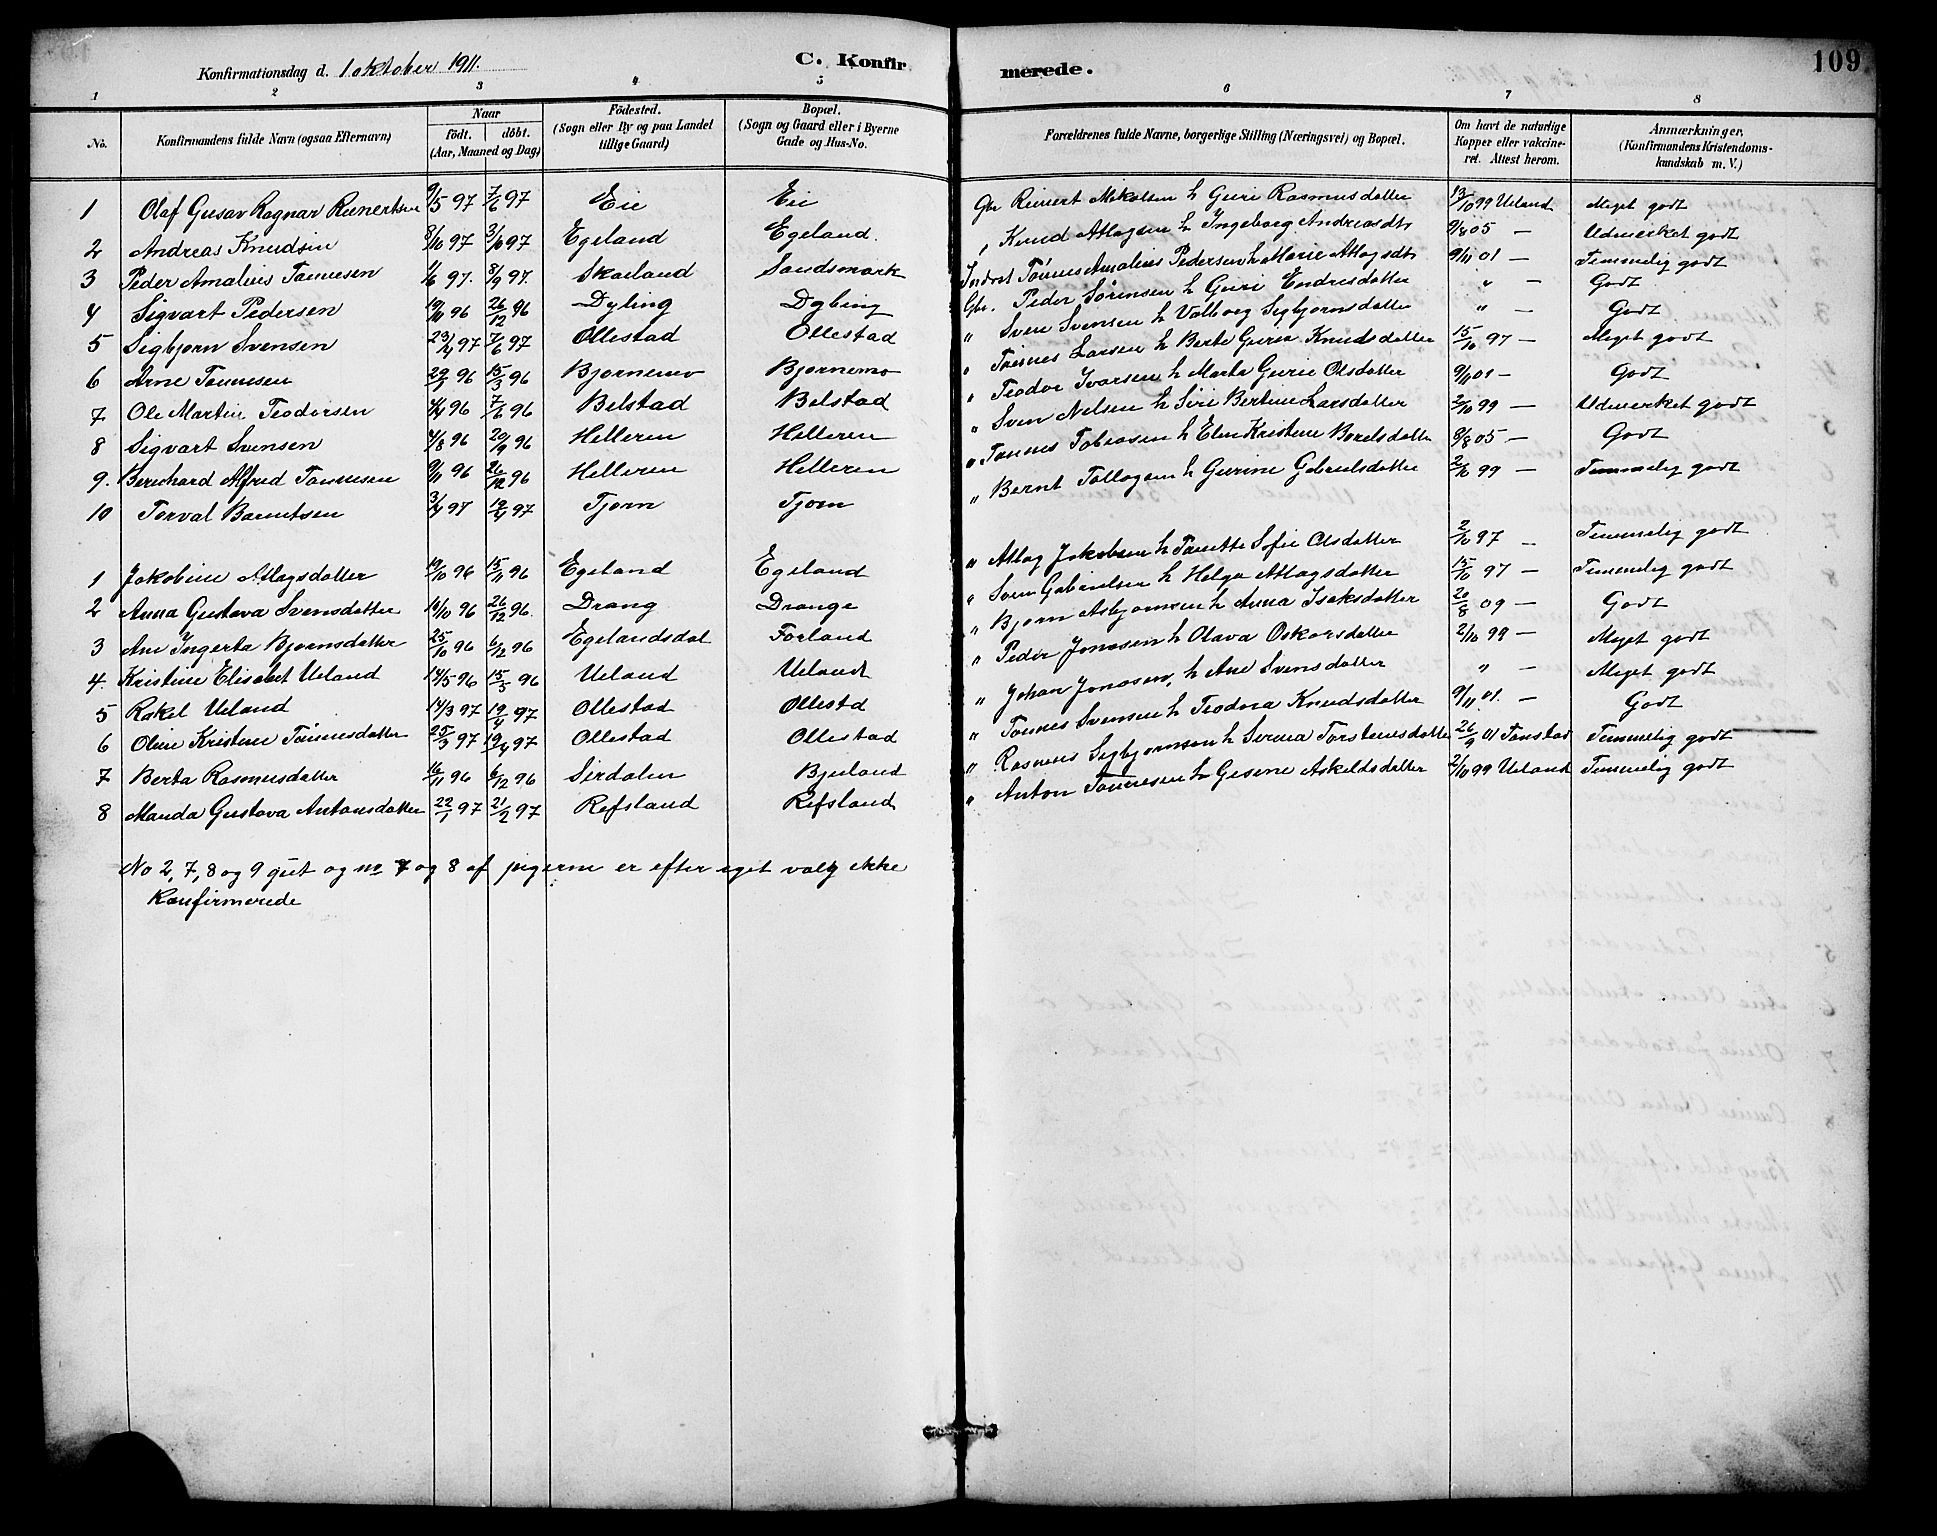 Konfirmationsdag d. 1 oktober 1911. C. Konfirmerede. 109
1 2 3 4 5 6 7 8
No. Konfirmandens fulde Navn (ogsaa Efternavn) Naar födt. döbt. (Aar, Maaned og Dag) Födested. (Sogn eller By og paa Landet tillige Gaard) Bopæl. (Sogn og Gaard eller i Byerne Gade og Hus-No. Forældrenes fulde Navne, borgerlige Stilling (Næringsvei) og Bopæl. Om havt de naturlige Kopper eller vakcineret. Attest herom. Anmærkninger. (Konfirmandens Kristendomskundskab m. V.)
1 Olaf Gusav Ragnar Reinertsen 9/5 97 7/6 97 Eie Eie Gbr Reinert Mikalsen h Guri Rasmusdatter 13/10 99 Ueland Meget godt
2 Andreas Knudsen 8/10 97 3/10 97 Egeland Egeland. " Knud Atlagsen h Ingeborg Andreasdtr 9/4 05 — Udmerket godt
3 Peder Amalius Tønnesen 1/6 97. 8/9 97. Skailand Sandsmark Indrst Tønnes Amalius Pedersen h Marie Atlagsdtr 9/11 01 — Temmelig godt
4 Sigvart Pedersen 19/10 96 26/12 96 Dyling Dybing Gbr. Peder Sørensen h Guri Endresdatter " — Godt
5 Sigbjørn Svensen 23/4 97 7/6 97 Ollestad Ollestad " Sven Svensen h Valborg Sigbjørnsdatter " — Godt
6 Arne Tønnesen 29/1 96 15/3 96 Bjørnemo Bjørnemo " Tønnes Larsen h Berte Guria Knudsdatter 15/10 97 — Meget godt
7 Ole Martin Teodorsen 4/4 96 7/6 96 Belstad Belstad " Teodor Ivarsen h Marta Gurie Olsdatter 9/11 01 — Godt
8 Sigvart Svensen 4/8 96 20/9 96 Helleren Helleren " Sven Nelsen h Siri Bertine Larsdatter 2/10 99 — Udmerket godt
9. Bernhard Alfred Tønnesen 9/11 96 26/12 96 Helleren Helleren " Tønnes Tobiasen h Elen Kristine Borelsdatter 8/8 05 — Godt
10 Torval Barntsen 3/4 97 19/4 97 Tjorn Tjorn " Bernt Tollagsen h Gurine Gabrielsdatter 2/10 99 — Temmelig godt
1 Jakobine Atlagsdatter 19/10 96 15/11 96 Egeland Egeland " Atlag Jakobsen h Tanette Sofie Olsdatter 2/10 97 — Temmelig godt
2 Anna Gustava Svensdatter 10/10 96 26/12 96. Drang Drange " Sven Gabrielsen h Helga Atlagsdatter 15/10 97 — Temmelig godt
3 Ane Ingerta Bjørnsdatter 25/10 96 6/12 96 Egelandsdal Førland " Bjørn Asbjørnsen h Anna Isaksdatter 20/8 09 — Godt
4. Kristine Elisabet Ueland 14/5 96 15/5 96 Ueland Ueland " Peder Jonasen h Olava Oskarsdatter 2/10 99 — Meget godt
5 Rakel Ueland 14/3 97 19/4 97 Ollestad Ollestd " Johan Jonasen, h Ane Svensdatter " — Meget godt
6 Oline Kristine Tønnesdatter 25/3 97 19/4 97 Ollestad Ollestad " Tønnes Svensen h Teodora Knudsdatter 9/11 01. — Godt
7 Berta Rasmusdatter 16/11 96 6/12 96 Sirdalen Bjuland " Rasmus Sigbjørnsen h Serina Torstensdatter 26/9 01 Tonstad Temmelig godt
8 Manda Gustava Antonsdatter 22/1 97 21/2 97 Refsland Refsland " Anton Tønnesen h Gesine Askeldsdatter 2/10 99 Ueland Temmelig godt
No 2, 7, 8 og 9 gut og no 7 og 8 af pigerne er efter eget valg ikke
Konfirmerede